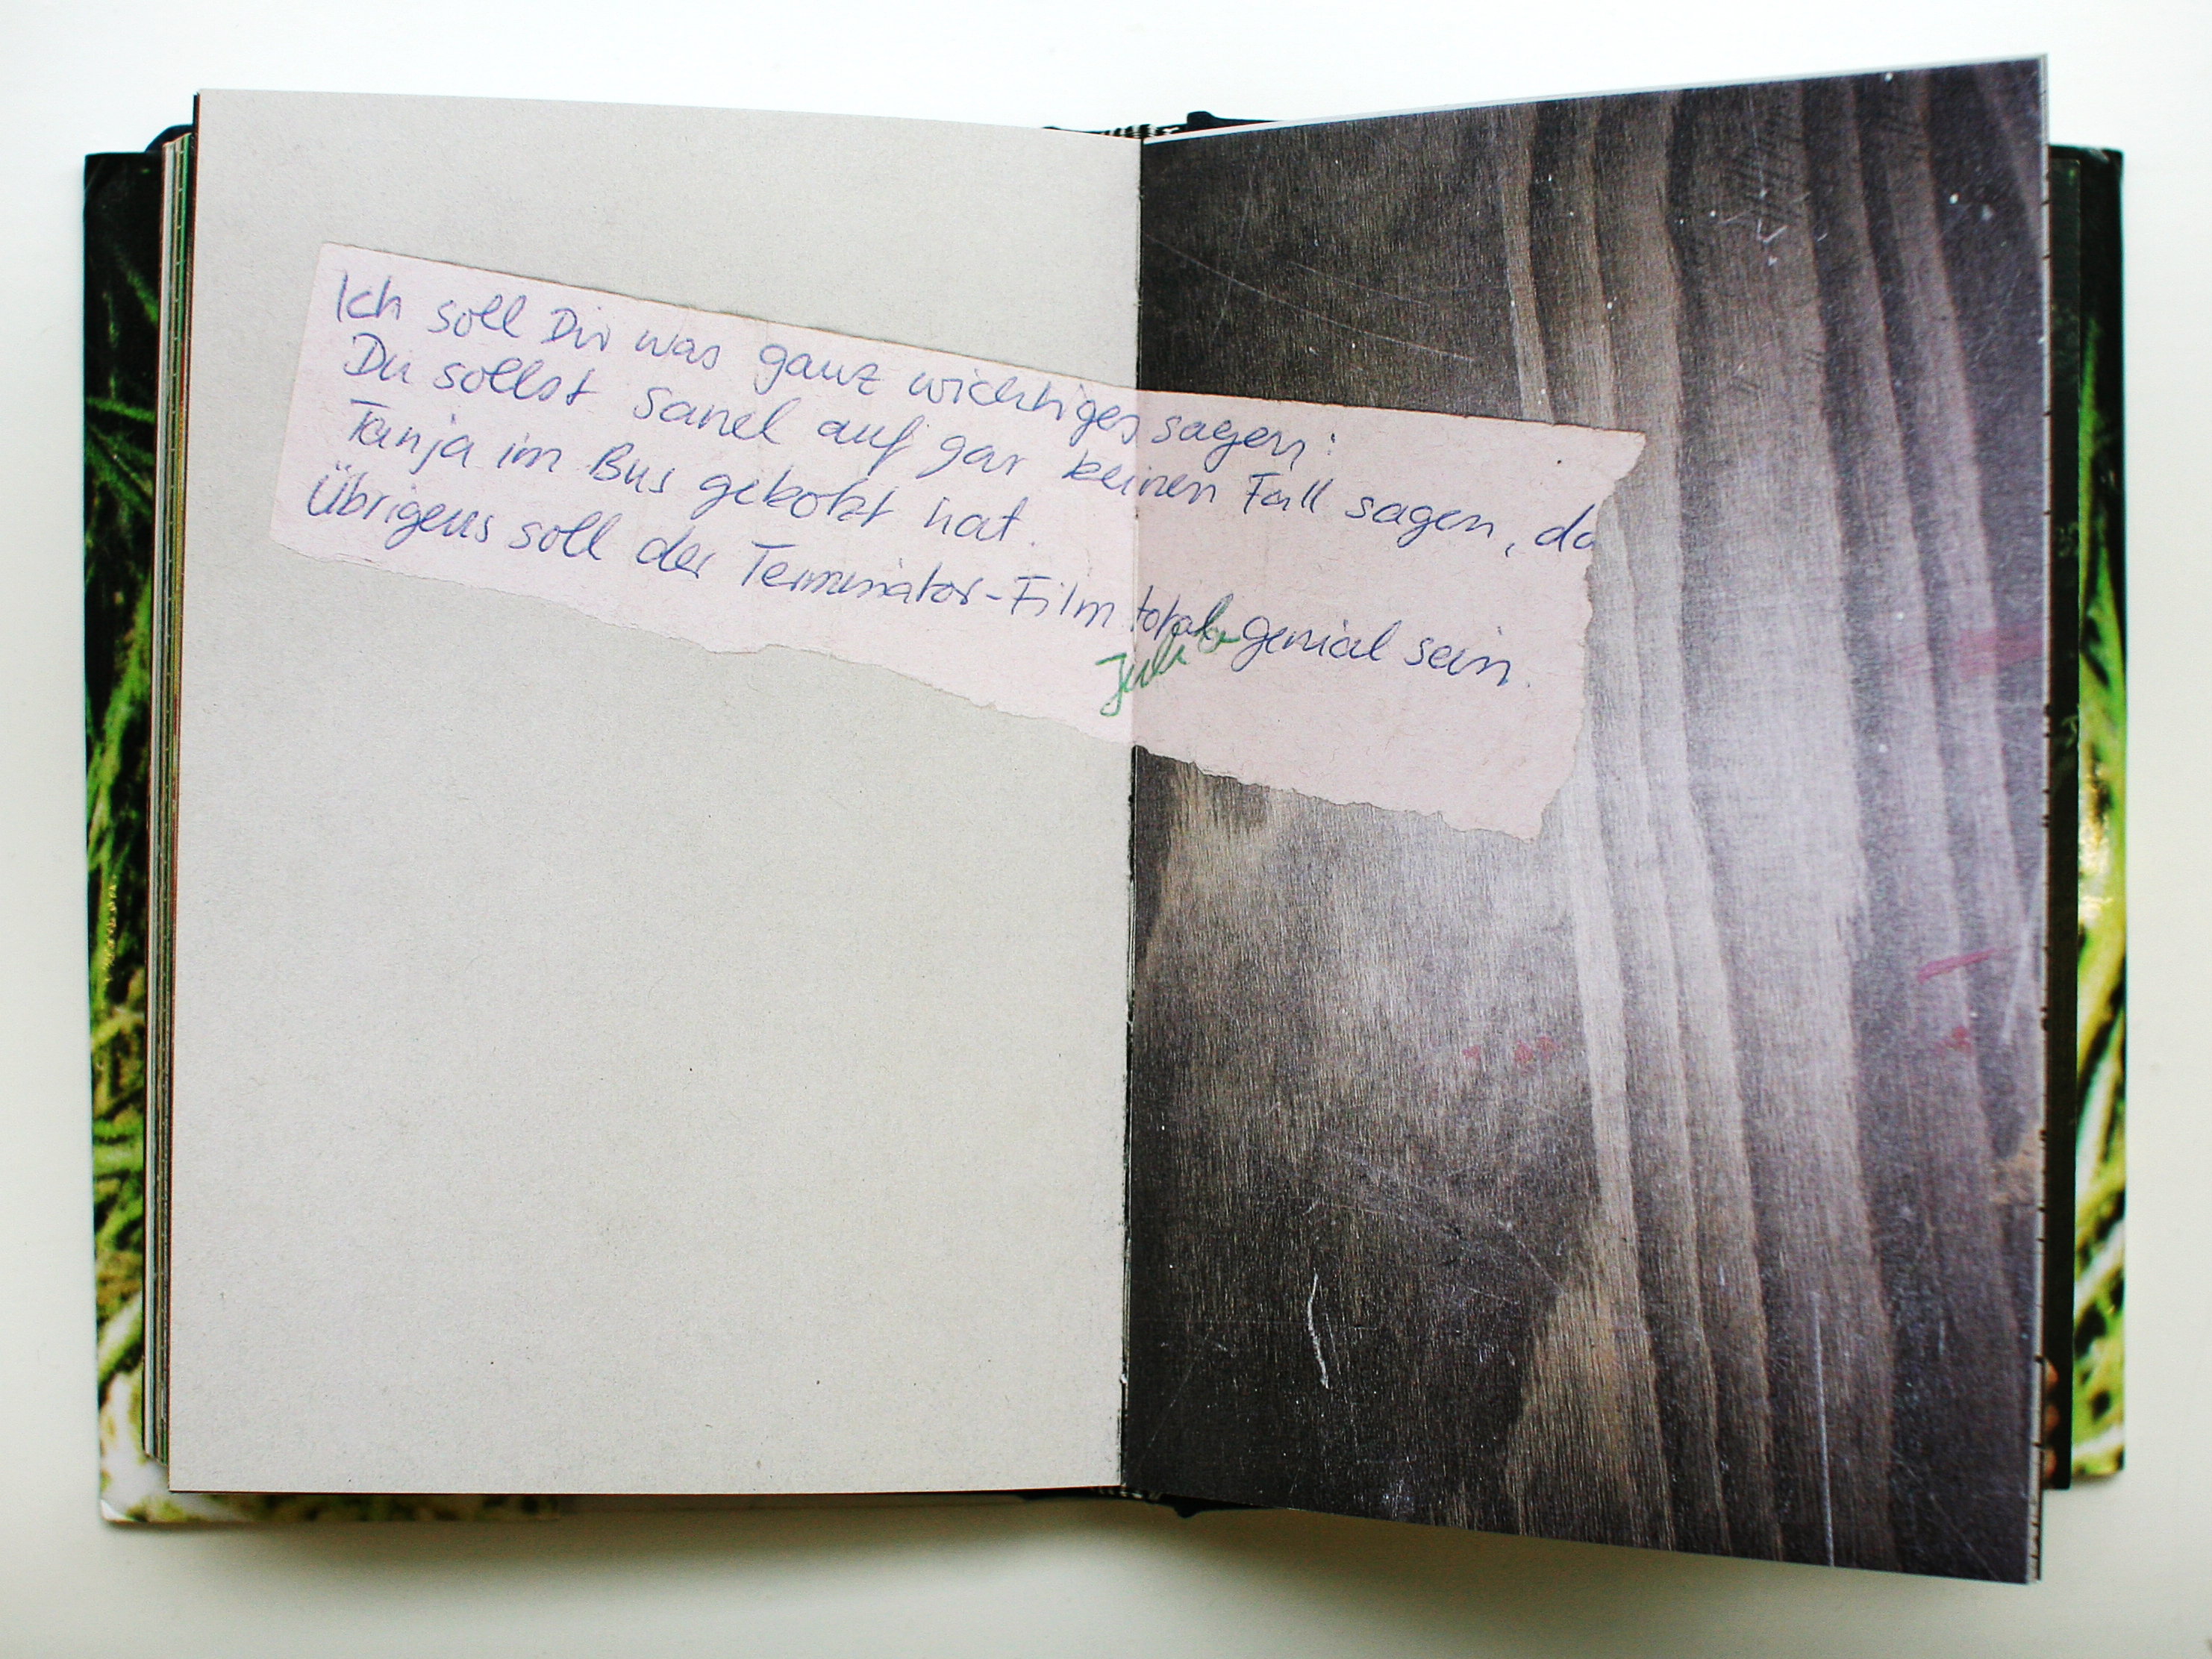 Ich soll Dir was ganz wichtiges sagen:
Du sollst Sanel auf gar keinen Fall sagen, da
Tanja im Bus gekotzt hat.
Übrigens soll der Terminator-Film total genial sein.